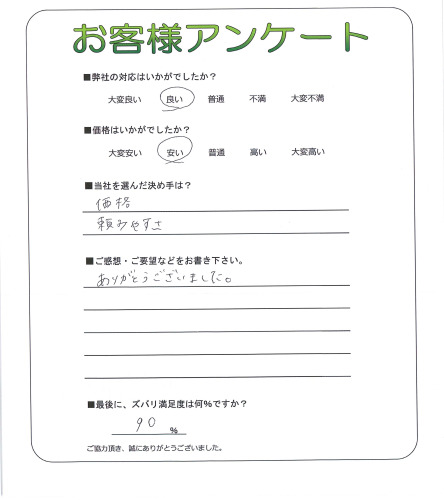 お客様アンケート
■弊社の対応はいかがでしたか?
大変良い 良い 普通 不満 大変不満
■価格はいかがでしたか?
大変安い 安い 普通 高い 大変高い
■当社を選んだ決め手は?
価格
頼みやすさ
■ご感想・ご要望などをお書き下さい。
ありがとうございました。
■最後に、ズバリ満足度は何%ですか?
90 %
ご協力頂き、誠にありがとうございました。